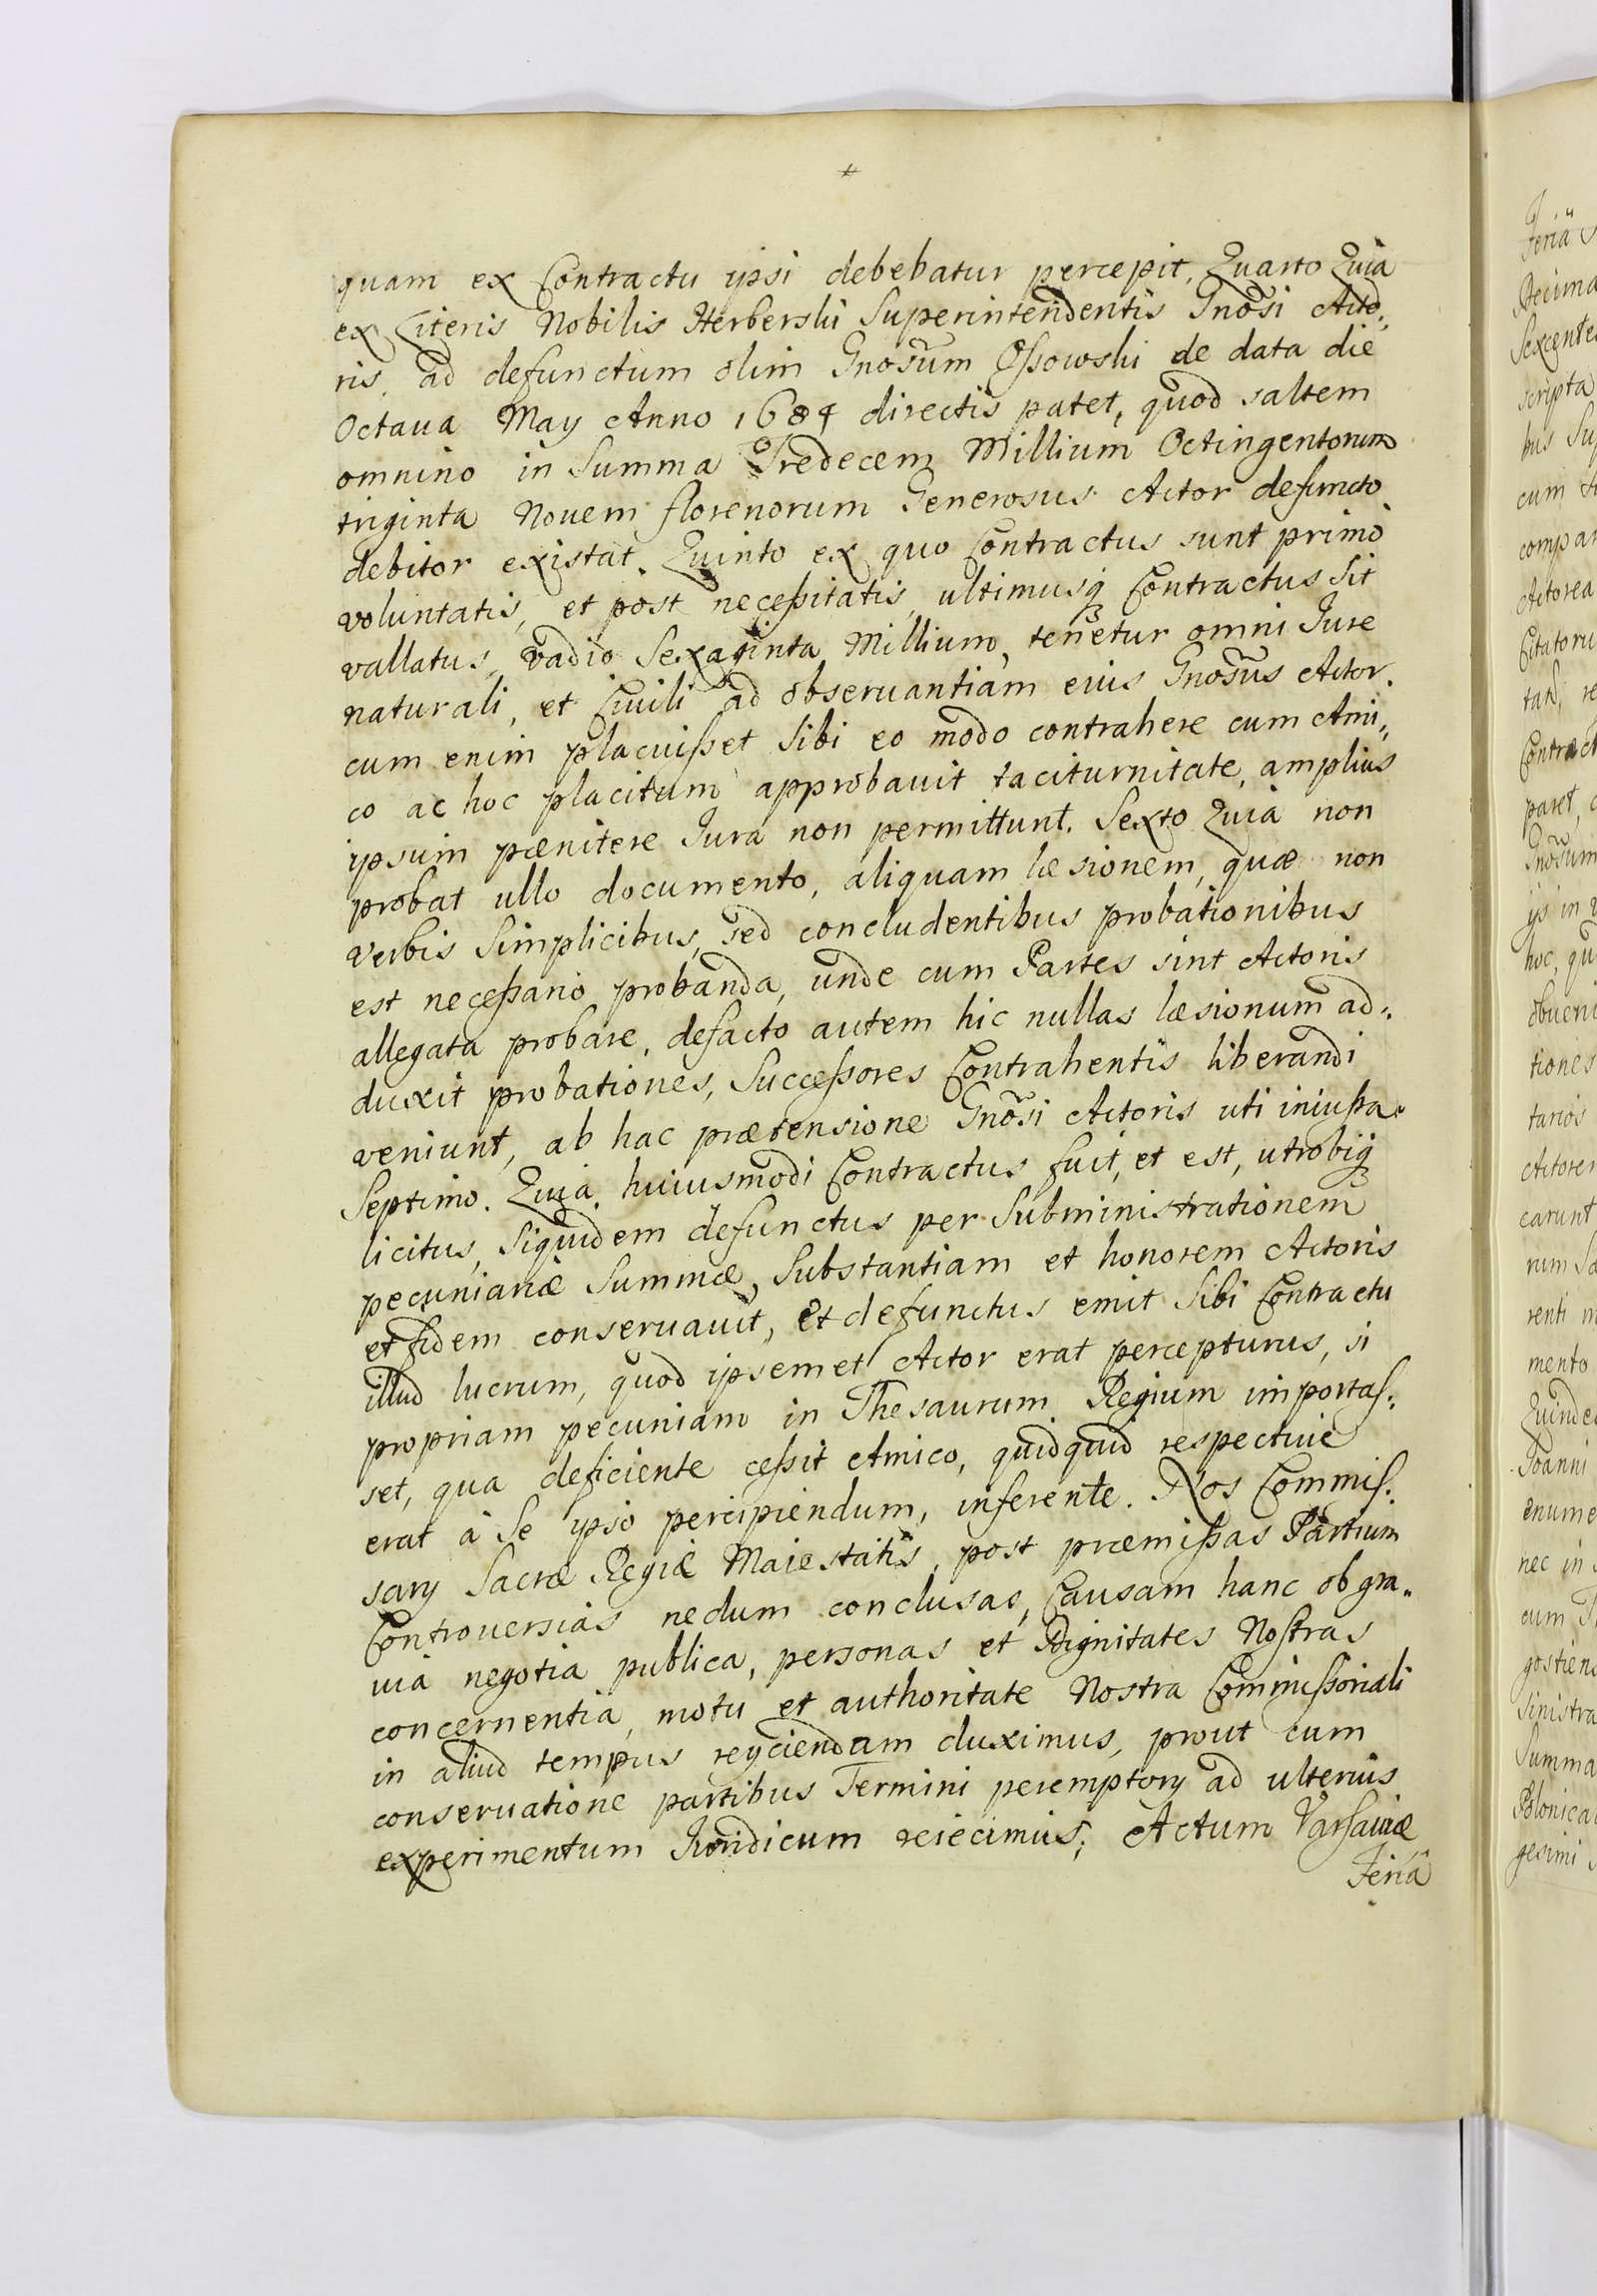 quam ex Contractu ipsi debebatur percepit, Quarto Quia
ex Literis Nobilis Herberski Superintendentis Gnosi Acto,,
ris, ad defunctum olim Gnosum Ossowski de data die
Octaua May Anno 1684 directis patet, quod saltem
omnino in Summa Tredecem Millium Octingentorum
triginta Nouem florenorum Generosus Actor defuncto
debitor existat. Quinto ex quo Contractus sunt primò
voluntatis, et post necessitatis, ultimusq Contractus sit
vallatus, vadio Sexaginta Millium, tenetur omni Jure
naturali, et Ciuili ad obseruantiam eius Gnosus Actor.
cum enim placuisset sibi eo modo contrahere cum Ami,,
co ac hoc placitum approbauit taciturnitate, amplius
ipsum pœnitere Jura non permittunt. Sexto Quia non
probat ullo documento, aliquam læsionem, quæ non
verbis simplicibus, sed concludentibus probationibus
est necessario probanda, unde cum Partes sint Actoris
allegata probare, defacto autem hic nullas læsionum ad,,
duxit probationes, Successores Contrahentis liberandi
veniunt, ab hac prætensione Gnosi Actoris uti iniusta.
Septimo. Quia huiusmodi Contractus fuit, et est, utrobiq
licitus, siquidem defunctus per Subministrationem
pecuniariæ Summæ, Substantiam et honorem Actoris
et fidem conseruauit, et defunctus emit sibi Contractu
illud lucrum, quod ipsemet Actor erat percepturus, si
propriam pecuniam in Thesaurum Regium importas,,
set, qua deficiente cessit Amico, quidquid respectiue
erat à Se ipso percipiendum, inferente. Nos Commis,,
sary Sacræ Regiæ Maiestatis, post præmissas Partium
Controuersias nedum conclusas, Causam hanc ob gra,,
uia negotia publica, personas et Dignitates Nostras
concernentia, motu et authoritate Nostra Commissoriali
in aliud tempus reyciendam duximus, prout cum
conseruatione partibus Termini peremptory ad ulterius
experimentum Juridicum reiecimus; Actum Varsauiæ
Feriâ